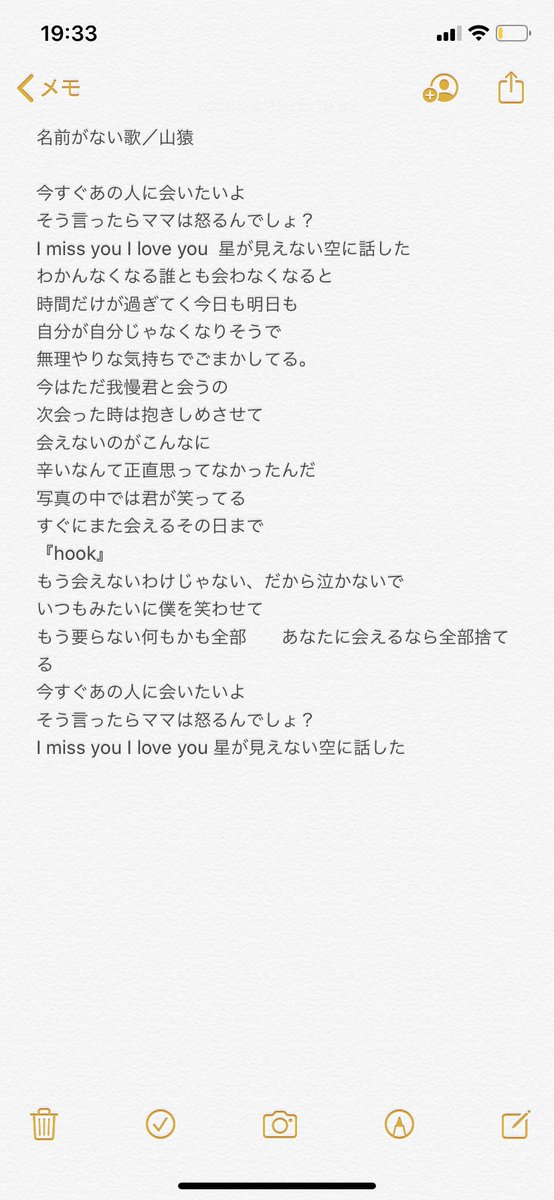 19:33
メモ
名前がない歌／山猿
今すぐあの人に会いたいよ
そう言ったらママは怒るんでしょ？
I miss you I love you  星が見えない空に話した
わかんなくなる誰とも会わなくなると
時間だけが過ぎてく今日も明日も
自分が自分じゃなくなりそうで
無理やりな気持ちでごまかしてる。
今はただ我慢君と会うの
次会った時は抱きしめさせて
会えないのがこんなに
辛いなんて正直思ってなかったんだ
写真の中では君が笑ってる
すぐにまた会えるその日まで
『hook』
もう会えないわけじゃない、だから泣かないで
いつもみたいに僕を笑わせて
もう要らない何もかも全部　　あなたに会えるなら全部捨て
る
今すぐあの人に会いたいよ
そう言ったらママは怒るんでしょ？
I miss you I love you 星が見えない空に話した